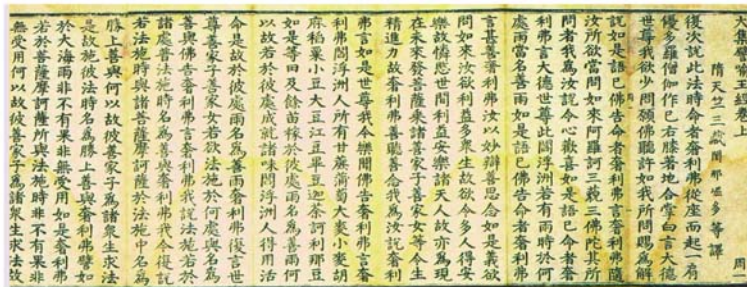 大集譬喻王經卷上　周一
隋天竺三藏闍那崛多等譯
復次說此法時命者奢利弗從座而起一肩
優多羅僧伽作已右膝著地合掌白言大德
世尊我欲少問願佛聽許如我所問賜為解
說如是語已佛告命者奢利弗言奢利弗隨
汝所欲當問如來阿羅訶三藐三佛陀其所
問者我為汝說令心歡喜如是語已命者奢
利弗言大德世尊此閻浮洲若有雨時於何
處雨當名善雨如是語已佛告命者奢利弗
言甚善奢利弗汝以妙辯善思念如是義欲
問如來汝欲利益多眾生故欲令多人得安
樂故憐愍世間利益安樂諸天人故亦為現
在未來發菩薩乘諸善家子善家女等令生
精進力故奢利弗善聽善念我為汝說奢利
弗言如是世尊我今樂聞佛告奢利弗言奢
利弗閻浮洲人所有甘蔗蒲萄大麥小麥胡
麻稻粟小豆大豆江豆畢豆迦余訶利那豆
如是等田及餘苗稼於彼處雨名為善雨何
以故若於彼處成就諸味閻浮洲人得用活
命是故於彼處雨名為善雨奢利弗復言世
尊善家子善家女若欲法施於何處與名為
善與佛告奢利弗言奢利弗我說法施若於
諸處普法施時名為善與奢利弗我今復說
若法施時與諸菩薩摩訶薩於法施中名為
勝上善與何以故彼善家子為諸眾生求法
是故施彼法時名為勝上善與奢利弗譬如
於大海雨非不有果非無受用如是奢利弗
若於菩薩摩訶薩所與法施時非不有果非
無受用何以故彼善家子為諸眾生求法故